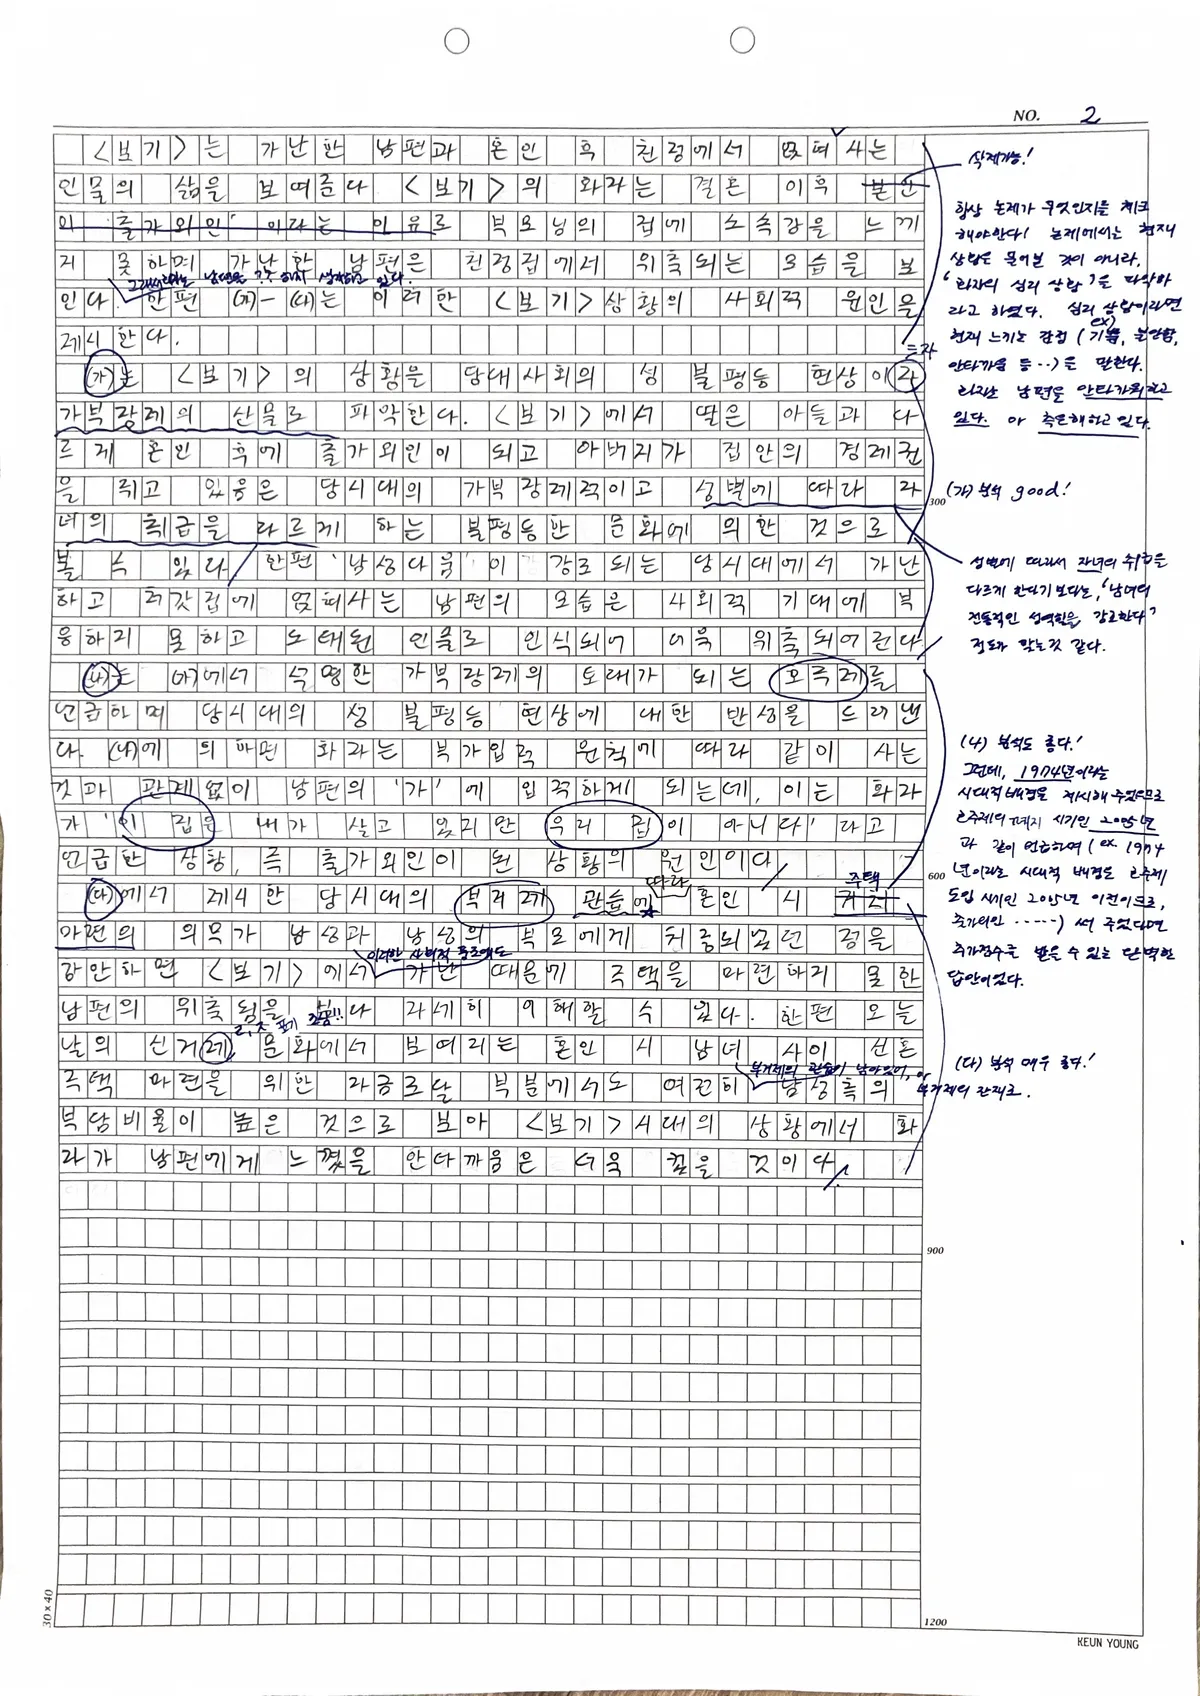 NO. 2
<보기>는 가난한 남편과 혼인 후 친정에서 얹혀사는
인물의 삶을 보여준다 <보기>의 화자는 결혼 이후 본인
의 '출가외인' 이라는 이유로 부모님의 집에 소속감을 느끼
지 못하며 가난한 남편은 친정집에서 위축되는 모습을 보
인다. 한편 (가)-(다)는 이러한 <보기>상황의 사회적 원인을
제시한다.
(가)는 <보기>의 상황을 당대사회의 성 불평등 현상이자
가부장제의 산물로 파악한다. <보기>에서 딸은 아들과 다
르게 혼인 후에 출가외인이 되고 아버지가 집안의 경제권
을 쥐고 있음은 당시대의 가부장제적이고 성별에 따라 자
녀의 취급을 다르게 하는 불평등한 문화에 의한 것으로
볼 수 있다 한편 '남성다움'이 강조되는 당시대에서 가난
하고 처갓집에 얹혀사는 남편의 모습은 사회적 기대에 부
응하지 못하고 도태된 인물로 인식되어 더욱 위축되어진다
(나)는 (가)에서 설명한 가부장제의 토대가 되는 호주제를
언급하며 당시대의 성 불평등 현상에 대한 반성을 드러낸
다. (나)에 의하면 화자는 부가입적 원칙에 따라 같이 사는
것과 관계없이 남편의 '가'에 입적하게 되는데, 이는 화자
가 '이 집은 내가 살고 있지만 우리 집이 아니다' 라고
언급한 상황, 즉 출가외인이 된 상황의 원인이다
(다)에서 제시한 당시대의 부거제 관습에 혼인 시 거처
마련의 의무가 남성과 남성의 부모에게 치중되었던 점을
감안하면 <보기>에서 가난 때문에 주택을 마련하지 못한
남편의 위축됨을 보다 자세히 이해할 수 있다. 한편 오늘
날의 신거제 문화에서 보여지는 혼인 시 남녀 사이 신혼
주택 마련을 위한 자금조달 부분에서도 여전히 남성측의
부담비율이 높은 것으로 보아 <보기>시대의 상황에서 화
자가 남편에게 느꼈을 안타까움은 더욱 컸을 것이다.
따라
주택
이러한 사회적 풍조에도
부거제의 관습이 남아있어, or
부거제의 잔재로.
삭제가능!
항상 논제가 무엇인지를 체크
해야한다! 논제에서는 현재
상황을 물어본 것이 아니라,
'화자의 심리 상황'을 파악하
라고 하였다. 심리 상황이라면
현재 느끼는 감정 (ex) 기쁨, 불안함,
안타까움 등...)을 말한다.
화자는 남편을 안타까워하고
있다. or 측은해하고 있다.
(가) 분석 good!
성별에 따라서 자녀의 취급을
다르게 한다기 보다는, '남녀의
전통적인 성역할을 강조한다'
정도가 맞는것 같다.
(나) 분석도 좋다!
그런데, 1974년이라는
시대적 배경을 제시해 주었으므로
호주제의 폐지 시기인 2005년
과 같이 언급하여 (ex. 1974
년이라는 시대적 배경도 호주제
도입 시기인 2005년 이전이므로,
출가외인 ......) 써 주었다면
추가점수를 받을 수 있는 완벽한
답안이었다.
(다) 분석 매우 좋다!
300
600
900
1200
30 × 40
KEUN YOUNG